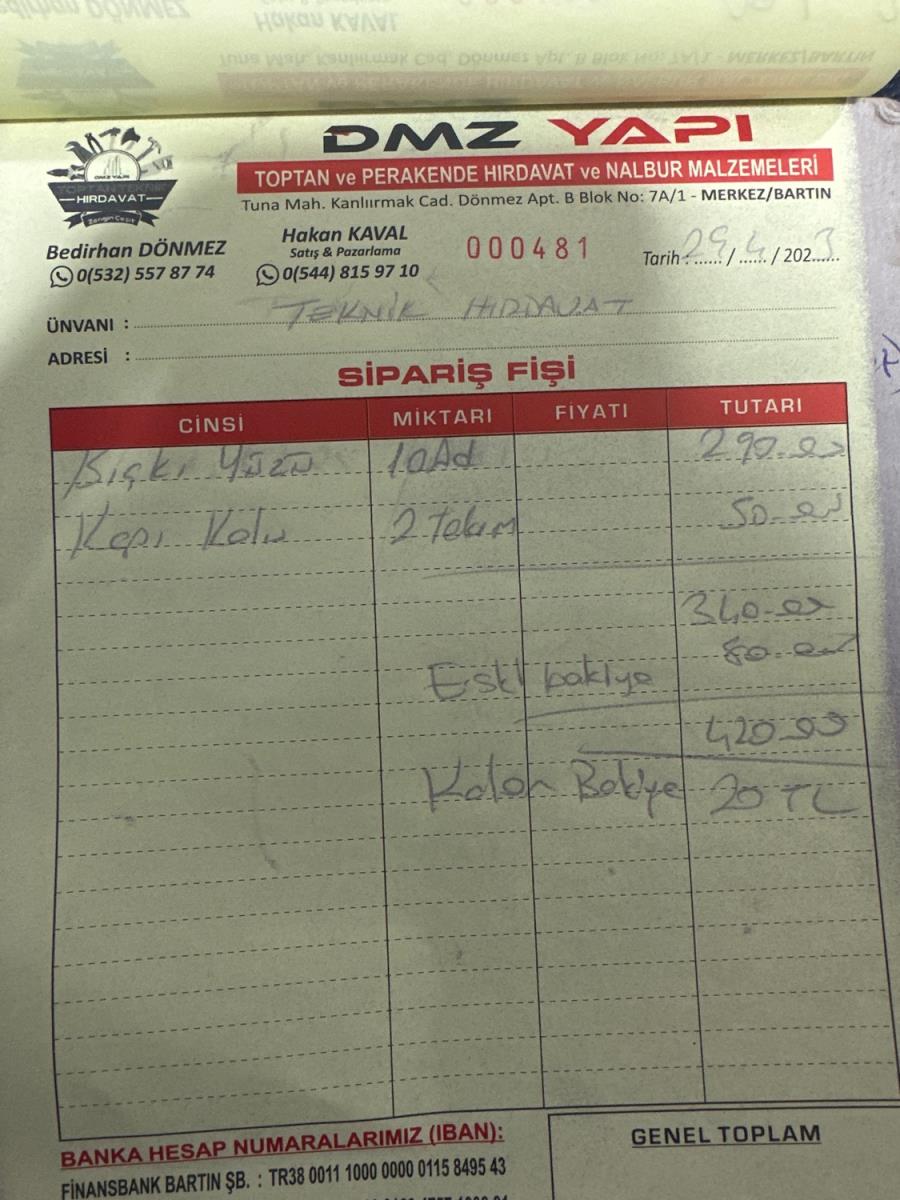 DMZ YAPI
TOPTAN ve PERAKENDE HIRDAVAT ve NALBUR MALZEMELERİ
Tuna Mah. Kanlıırmak Cad. Dönmez Apt. B Blok No: 7A/1 - MERKEZ/BARTIN
DMZ YAPI
TOPTAN TEKNİK
HIRDAVAT
Zengin Çeşit
Bedirhan DÖNMEZ
0(532) 557 87 74
Hakan KAVAL
Satış & Pazarlama
0(544) 815 97 10
000481
Tarih : 29 / 4 / 2023
ÜNVANI : TEKNİK HIRDAVAT
ADRESİ :
SİPARİŞ FİŞİ
CİNSİ MİKTARI FİYATI TUTARI
Bıçkı Yüzü 10 Ad 290.00
Kapı Kolu 2 Takım 50.00
340.00
80.00
Eski bakiye
420.00
Kalan Bakiye 20 TL
BANKA HESAP NUMARALARIMIZ (IBAN):
FİNANSBANK BARTIN ŞB. : TR38 0011 1000 0000 0115 8495 43
GENEL TOPLAM